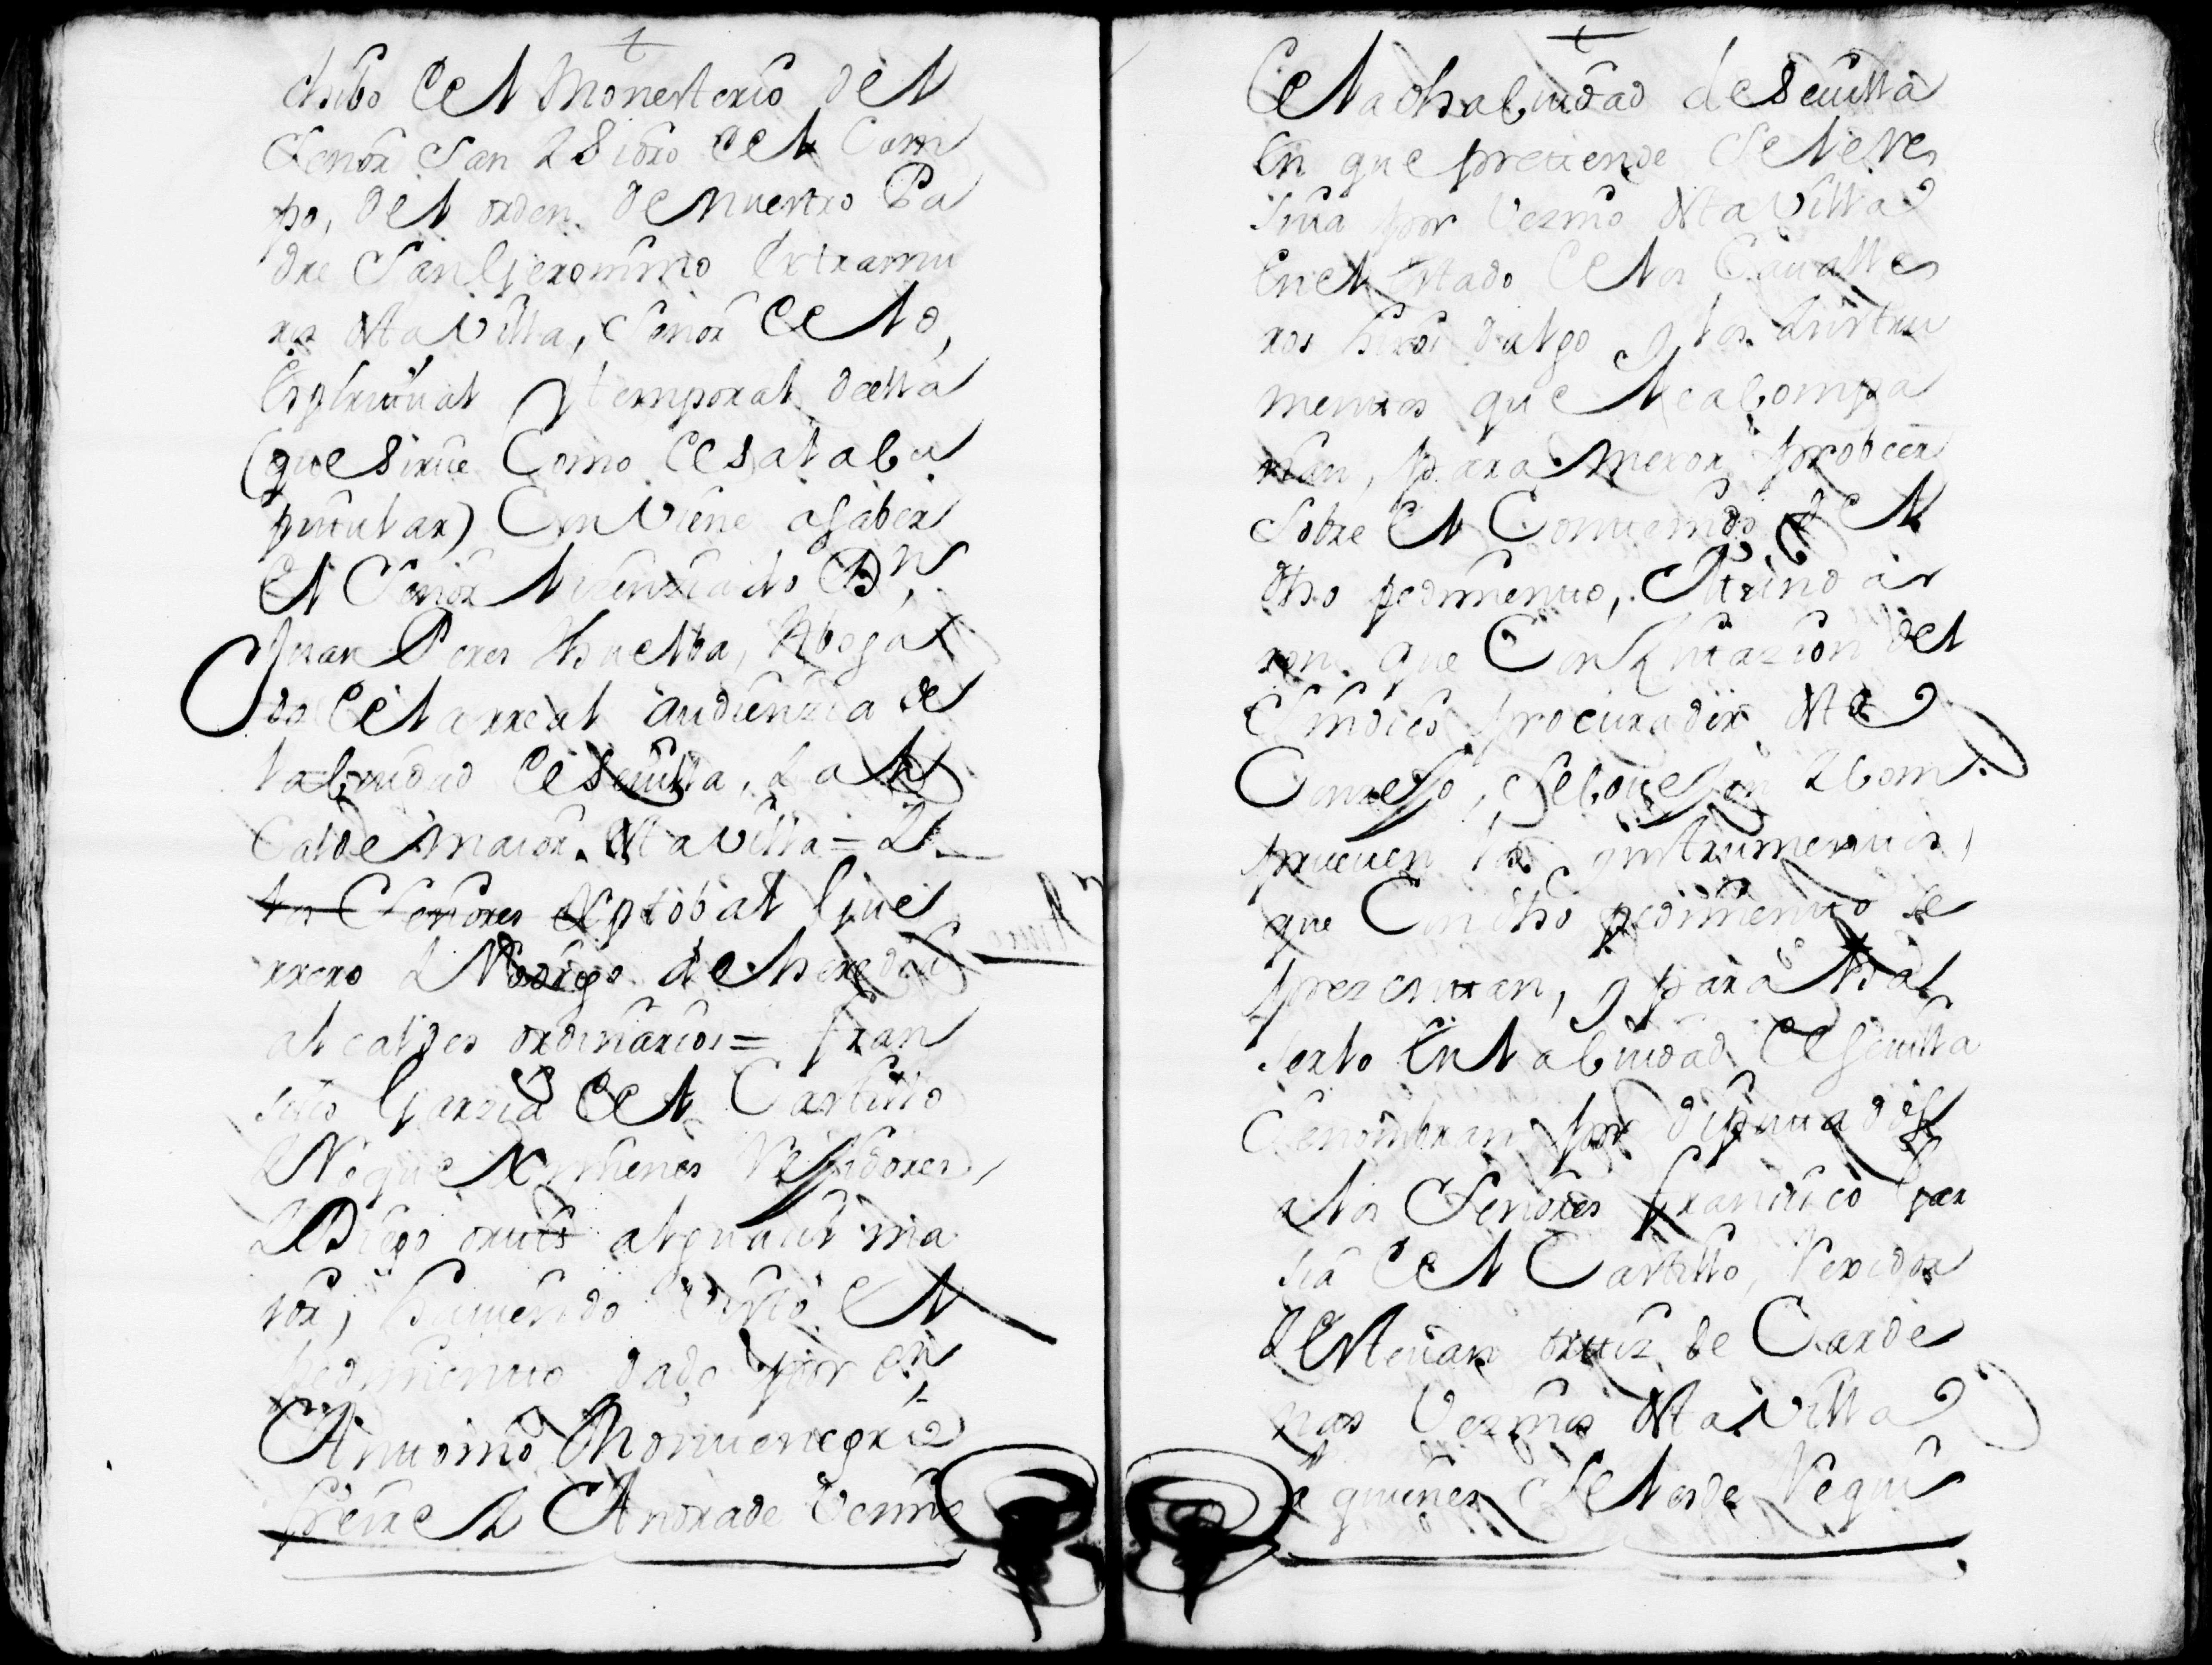 chibo de el Monesterio de el
Señor San Isidro de el Cam
po, de el orden de nuestro Pa
dre San Geronimo extramu
ros de esta Villa, Señor de lo,
espiritual y temporal de ella
(que sirue Como de sala Ca
pitular) Conviene a saber
el Señor lizenziado Dn.
Juan Peres Huelba, Aboga
do de la rreal audienzia de
la Ciudad de Seuilla, i al
Calde maior de esta Villa = i
los Señores Cristobal Gue
rrero i Rodrigo de heredia
alcaldes ordinarios = fran
sisco Garzia de el Castillo
i Roque Ximenes Regidores,
i Diego ortis alguacil ma
ior, hauiendo visto el
pedimento dado por dn.
Antonio Montenegro
freire i Andrade Vezino
de la dha Ciudad de Seuilla
en que pretende se le res
siua por Vezino de esta Villa
en el estado de los Caualle
ros hixos dalgo y los instru
mentos que le acompa
ñan, para mexor probeer
sobre el Contenido de el
dho pedimento, Acorda
ron que Con Zitazion del
Sindico procurador de este
Conzejo, se Coteje i Com
prueuen los instrumentos,
que Con dho pedimento se
prezentan, y para haz
serlo en la Ciudad de Seuilla
Se nombran por diputados
a los Señores francisco gar
sia de el Castillo, Rexidor
i Esteuan ortiz de Carde
nas Vezinos de esta Villa
a quienes se les de Requi